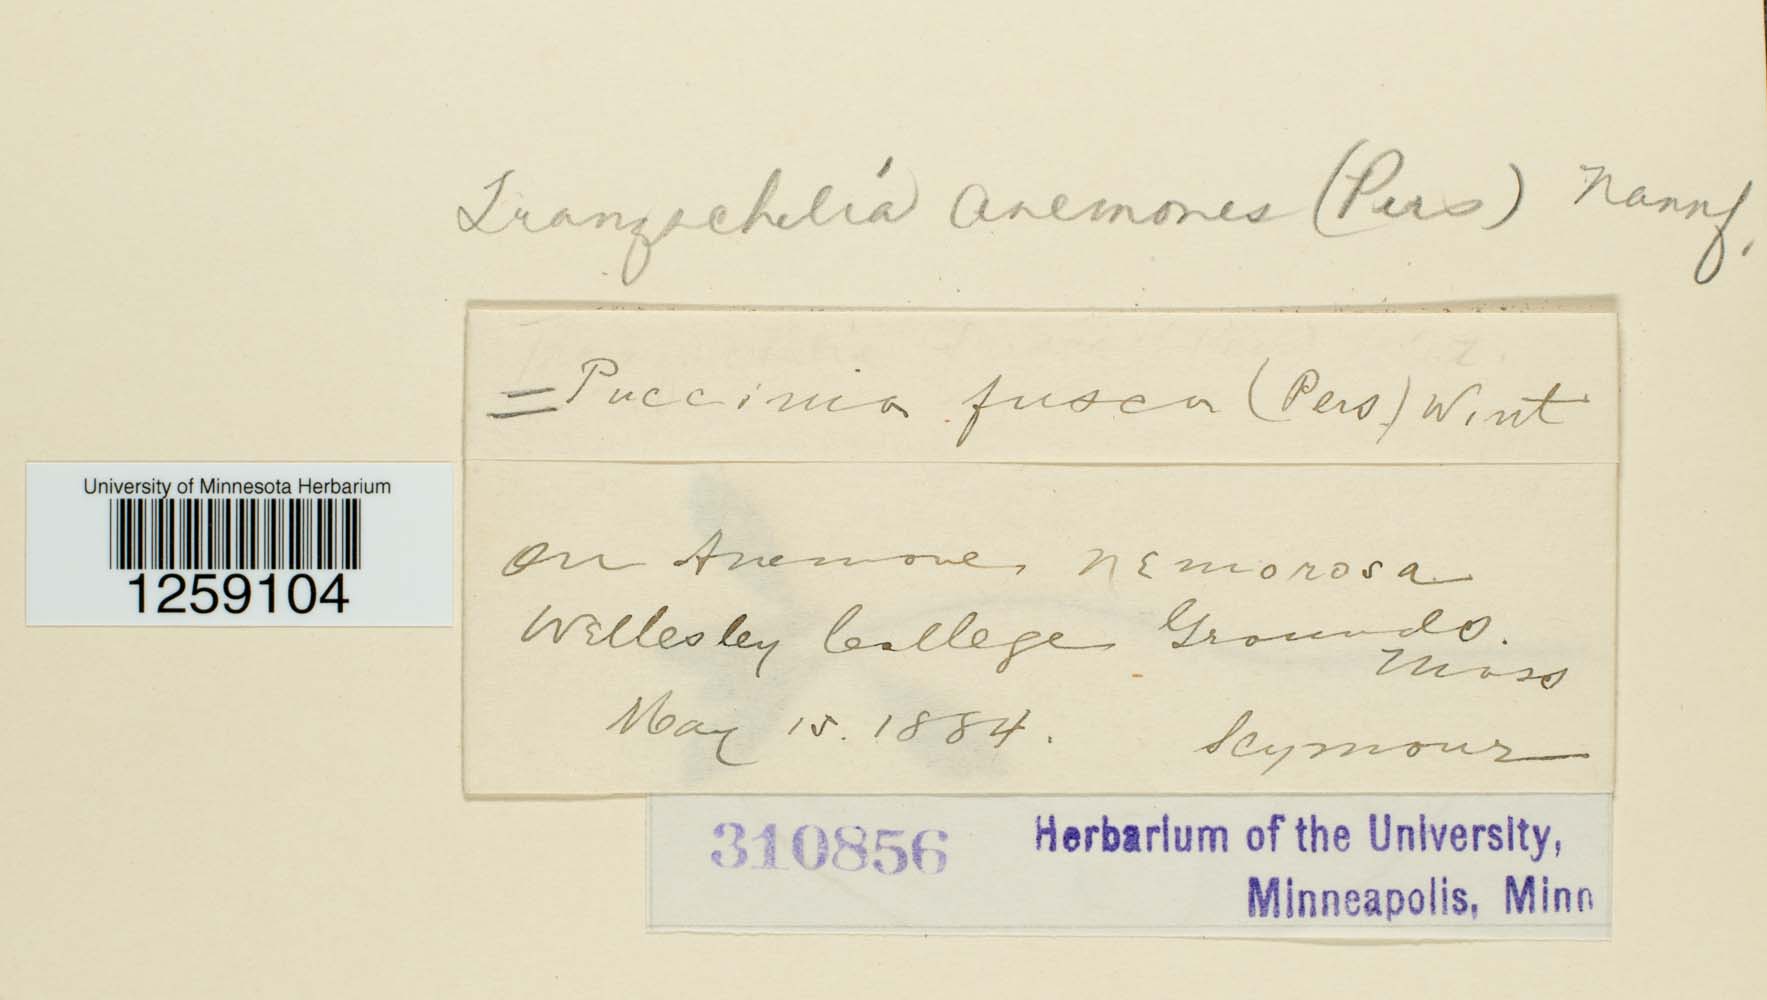 Tranzschelia anemones (Pers) Nannf.
= Puccinia fusca (Pers.) Wint
on Anemone nemorosa
Wellesley College Grounds.
Mass
May 15. 1884. Seymour
University of Minnesota Herbarium
1259104
310856 Herbarium of the University,
Minneapolis, Minn